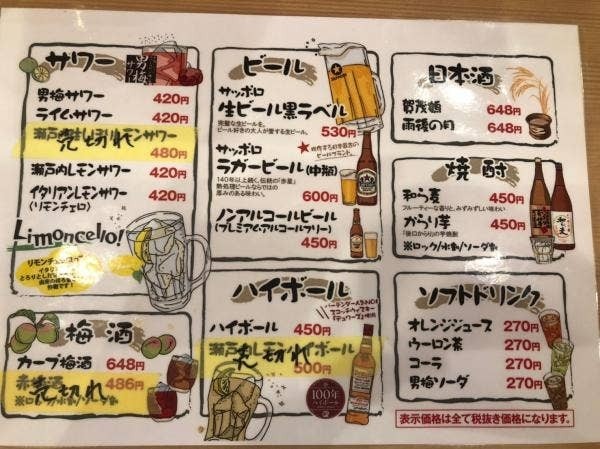 サワー
男梅サワー 420円
ライムサワー 420円
売切れ
480円
瀬戸内レモンサワー 420円
イタリアンレモンサワー 420円
(リモンチェロ)
Limoncello!
梅酒
カープ梅酒 648円
売切れ 486円
ビール
サッポロ
生ビール黒ラベル
完璧な生ビールを。
ビール好きの大人が愛する生ビール。
530円
サッポロ
ラガービール(中瓶)
140年以上続く、伝統の「赤星」
熱処理ビールならではの
厚みのある味わい。
600円
ノンアルコールビール
(プレミアムアルコールフリー)
450円
ハイボール
ハイボール 450円
売切れ
500円
100年
ハイボール
日本酒
賀茂鶴 648円
雨後の月 648円
焼酎
和ら麦 450円
フルーティーな香りと、みずみずしい味わい
からり芋 450円
※ロック/水割/ソーダ割
ソフトドリンク
オレンジジュース 270円
ウーロン茶 270円
コーラ 270円
男梅ソーダ 270円
表示価格は全て税抜き価格になります。